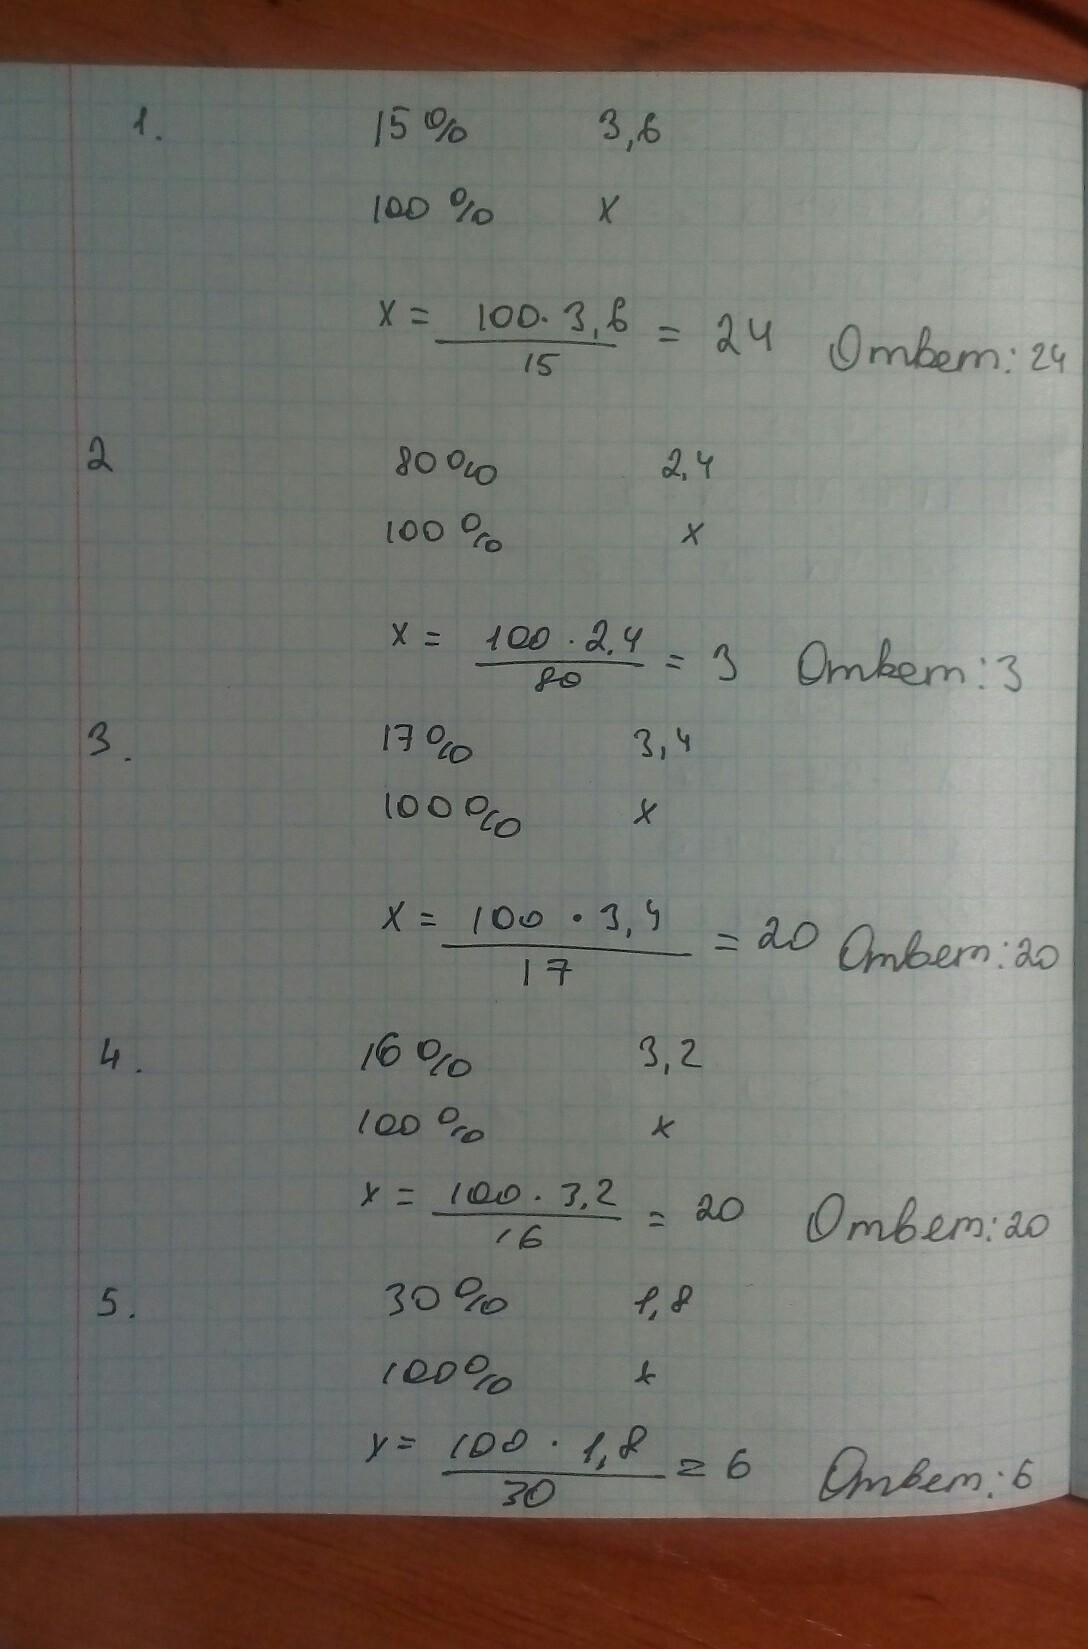 1. 15% 3,6
100% x
x = 100 · 3,6 / 15 = 24 Ответ: 24
2 80% 2,4
100% x
x = 100 · 2,4 / 80 = 3 Ответ: 3
3. 17% 3,4
100% x
x = 100 · 3,4 / 17 = 20 Ответ: 20
4. 16% 3,2
100% x
x = 100 · 3,2 / 16 = 20 Ответ: 20
5. 30% 1,8
100% x
x = 100 · 1,8 / 30 = 6 Ответ: 6